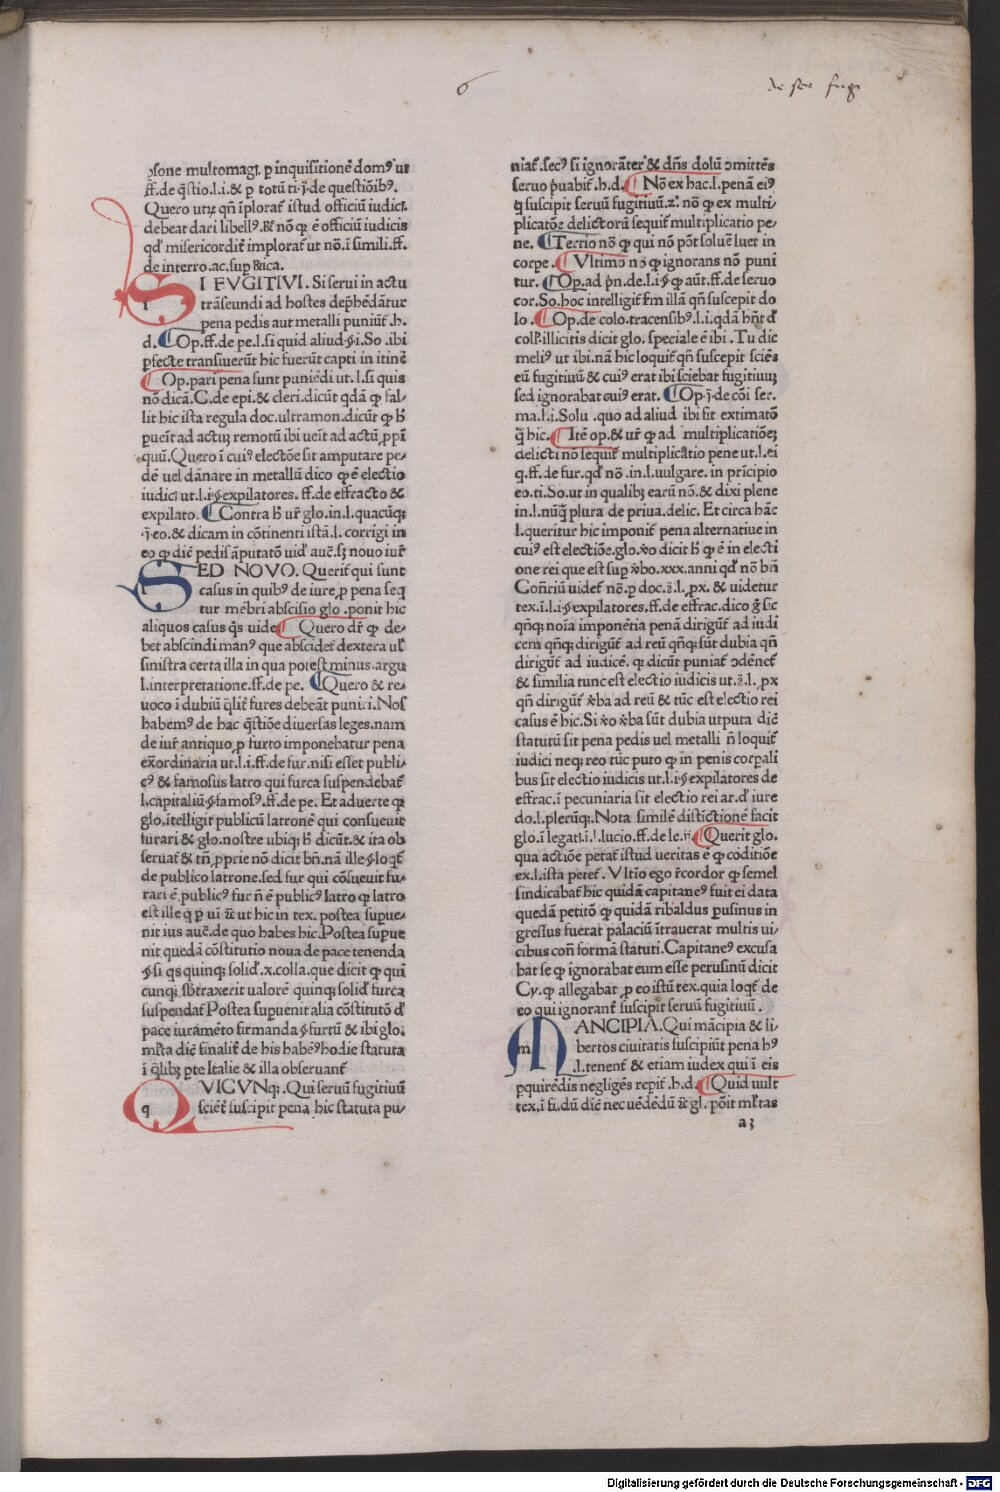 6
de ser fug
ꝯsone multomagꝭ. ꝑ inquisitionē domꝰ ut
ff. de q̄stio.l.i.& ꝑ totū ti.j̄.de questiōibꝰ.
Quero utꝝ qn̄ īploratʼ istud officiū iudicꝭ.
debeat dari libellꝰ. R̄ʼ nō ꝙ ē officiū iudicis
qdʼ misericordit̄ imploratʼ ut nō.ī simili.ff.
de interro.ac.sup Rʼica.
SI FVGITIVI. Si serui in actu
trāseundi ad hostes dep̄hēdātur
pena pedis aut metalli puniūtʼ.h.
d. Op.ff.de pe.l.si quid aliud.§.i.So.ibi
ꝑfecte transiuerūt hic fuerūt capti in itinē
Op.pari pena sunt puniēdi ut.l.si quis
nō dicā.C.de epi.& cleri.dicūt qdā ꝙ fal⸗
lit hic ista regula doc.ultramon.dicūt ꝙ hʼ
ꝑueītʼ ad actuꝫ remotū ibi ueītʼ ad actū ꝓpī
quū. Quero ī cuiꝰ electōe sit amputare pe⸗
dē uel dānare in metallū dico ꝙ ē electio
iudicꝭ ut.l.i.§.expilatores.ff.de effracto &
expilato. Contra hʼ urʼ glo.in.l.quacūqꝫ
.j̄.eo.& dicam in cōtinenti istā.l.corrigi in
eo ꝙ diēʼ pedis āputatō uidʼ auē.sꝫ nouo iurʼ
SED NOVO. Queritʼ qui sunt
casus in quibꝰ de iure ꝓ pena seq
tur mēbri abscisio glo.ponit hic
aliquos casus q̄s uide Quero drʼ ꝙ de⸗
bet abscindi manꝰ que abscidetʼ dextera ulʼ
sinistra certa illa in qua potest minus.argu
l.interpretatione.ff.de pe. Quero & re⸗
uoco ī dubiū q̄litʼ fures debeāt puniri. Nos
habemꝰ de hac q̄stiōe diuersas leges.nam
de iurʼ antiquo ꝓ furto imponebatur pena
ex̄ordinaria ut.l.i.ff.de fur.nisi esset publi⸗
cꝰ & famosus latro qui furca suspendebatʼ
l.capitaliū.§.famosꝰ.ff.de pe. Et aduerte qꝛ
glo.ītelligit publicū latronē qui consueuit
furari & glo.nostre ubiqꝫ hʼ dicūt.& ita ob
seruatʼ & tn̄ ꝓprie nō dicit bn̄.nā ille.§.loqtʼ
de publico latrone.sed fur qui cōsueuit fu⸗
rari ē publicꝰ fur n̄ ē publicꝰ latro qꝛ latro
est ille q̄ ꝑ uī ut hic in tex. postea supue⸗
nit ius auē.de quo habes hic. Postea supue
nit quedā cōstitutio noua de pace tenenda
.§.si qs quinqꝫ solidʼ.x.colla.que dicit ꝙ qui
cunqꝫ sbtraxerit ualorē quinqꝫ solidʼ furca
suspendatʼ Postea supuenit alia cōstitutō dʼ
pace iuramēto firmanda.§.furtū & ibi glo.
mʼlta diēʼ finalitʼ de his habēꝰ hodie statuta
ī q̄libꝫ ꝑte Italie & illa obseruantʼ
QVICVNqꝫ. Qui seruū fugitiuū
sciētʼ suscipit pena hic statuta pu⸗
niatʼ.secꝰ si ignorāter & dn̄s dolū ꝯmittēs
seruo p̄uabitʼ.h.d. Nō ex hac.l.penā eiꝰ
q̄ suscipit seruū fugitiuū.2ʼ. nō ꝙ ex multi
plicatōe delictorū sequitʼ multiplicatio pe⸗
ne. Tertio nō ꝙ qui nō pōt soluē luet in
corpe. Vltimo nō ꝙ ignorans nō puni
tur. Op.ad p̄n.de.l.i.§.ꝙ aūt.ff.de seruo
cor.So.hoc intelligitʼ fm illā qn̄ suscepit do
lo. Op.de colo.tracensibꝰ.l.i.qdā hn̄tʼ dʼ
colʼꝑ.illicitis dicit glo.speciale ē ibi. Tu dic
meliꝰ ut ibi.nā hic loquitʼ qn̄ suscipit sciēs
eū fugitiuū & cuiꝰ erat ibi sciebat fugitiuū
sed ignorabat cuiꝰ erat. Op.j̄.de cōi ser.
ma.l.i.Solu.quo ad aliud ibi fit extimatō
q̄ hic. Itē op.& urʼ ꝙ ad multiplicatiōeꝫ
delicti nō sequitʼ multiplicatio pene ut.l.ei
q.ff.de fur.qdʼ nō.in.l.uulgare.in prīcipio
eo.ti.So.ut in qualibꝫ earū nō.& dixi plene
in.l.nūq̄ plura de priua.delic. Et circa hāc
l.queritur hic imponitʼ pena alternatiue in
cuiꝰ est electiōe.glo.ꝟo dicit hʼ ꝙ ē in electi
one rei que est sup ꝟbo.xxx.anni qdʼ nō bn̄
Con̄riū uidetʼ nō.ꝑ doc.ī.l.ꝓx.& uidetur
tex.ī.l.i.§.expilatores.ff.de effrac.dico ḡ sic
qn̄qꝫ noīa imponētia penā diriguntʼ ad iudi
cem qn̄qꝫ diriguntʼ ad reū qn̄qꝫ sūt dubia qn̄
diriguntʼ ad iudicē. qꝛ dicūt puniatʼ ꝯdēnetʼ
& similia tunc est electio iudicis ut.ī.l.ꝓx
qn̄ diriguntʼ ꝟba ad reū & tūc est electio rei
casus ē hic. Si ꝟo ꝟba sūt dubia utputa diēʼ
statutū sit pena pedis uel metalli n̄ loquitʼ
iudici neqꝫ reo tūc puto ꝙ in penis corꝑali
bus sit electio iudicis ut.l.i.§.expilatores de
effrac.ī pecuniaria sit electio rei ar.dʼ iure
do.l.plerūqꝫ. Nota similē distictionē facit
glo.ī legati.ī.l.lucio.ff.de le.ij. Querit glo.
qua actiōe petatʼ istud ueritas ē ꝙ cōditiōe
ex.l.ista peretʼ. Vltio ego rʼcordor ꝙ semel
sindicabatʼ hic quidā capitaneꝰ fuit ei data
quedā petitō ꝙ quidā ribaldus ꝑusinus in
gressus fuerat palaciū ītrauerat multis ui⸗
cibus con̄ formā statuti. Capitaneꝰ excusa
bat se ꝙ ignorabat eum esse perusinū dicit
Cy.ꝙ allegabat ꝓ eo istū tex.quia loqtʼ de
eo qui ignorantʼ suscipit seruū fugitiuū.
MANCIPIA. Qui mācipia & li⸗
bertos ciuitatis suscipiūt pena hꝰ
.l.tenentʼ & etiam iudex qui ī eis
ꝑquirēdis negligēs repitʼ.h.d. Quid uult
tex.ī fi.dū diēʼ nec uēdēdū gl. pōit mʼltas
a3
Digitalisierung gefördert durch die Deutsche Forschungsgemeinschaft - DFG